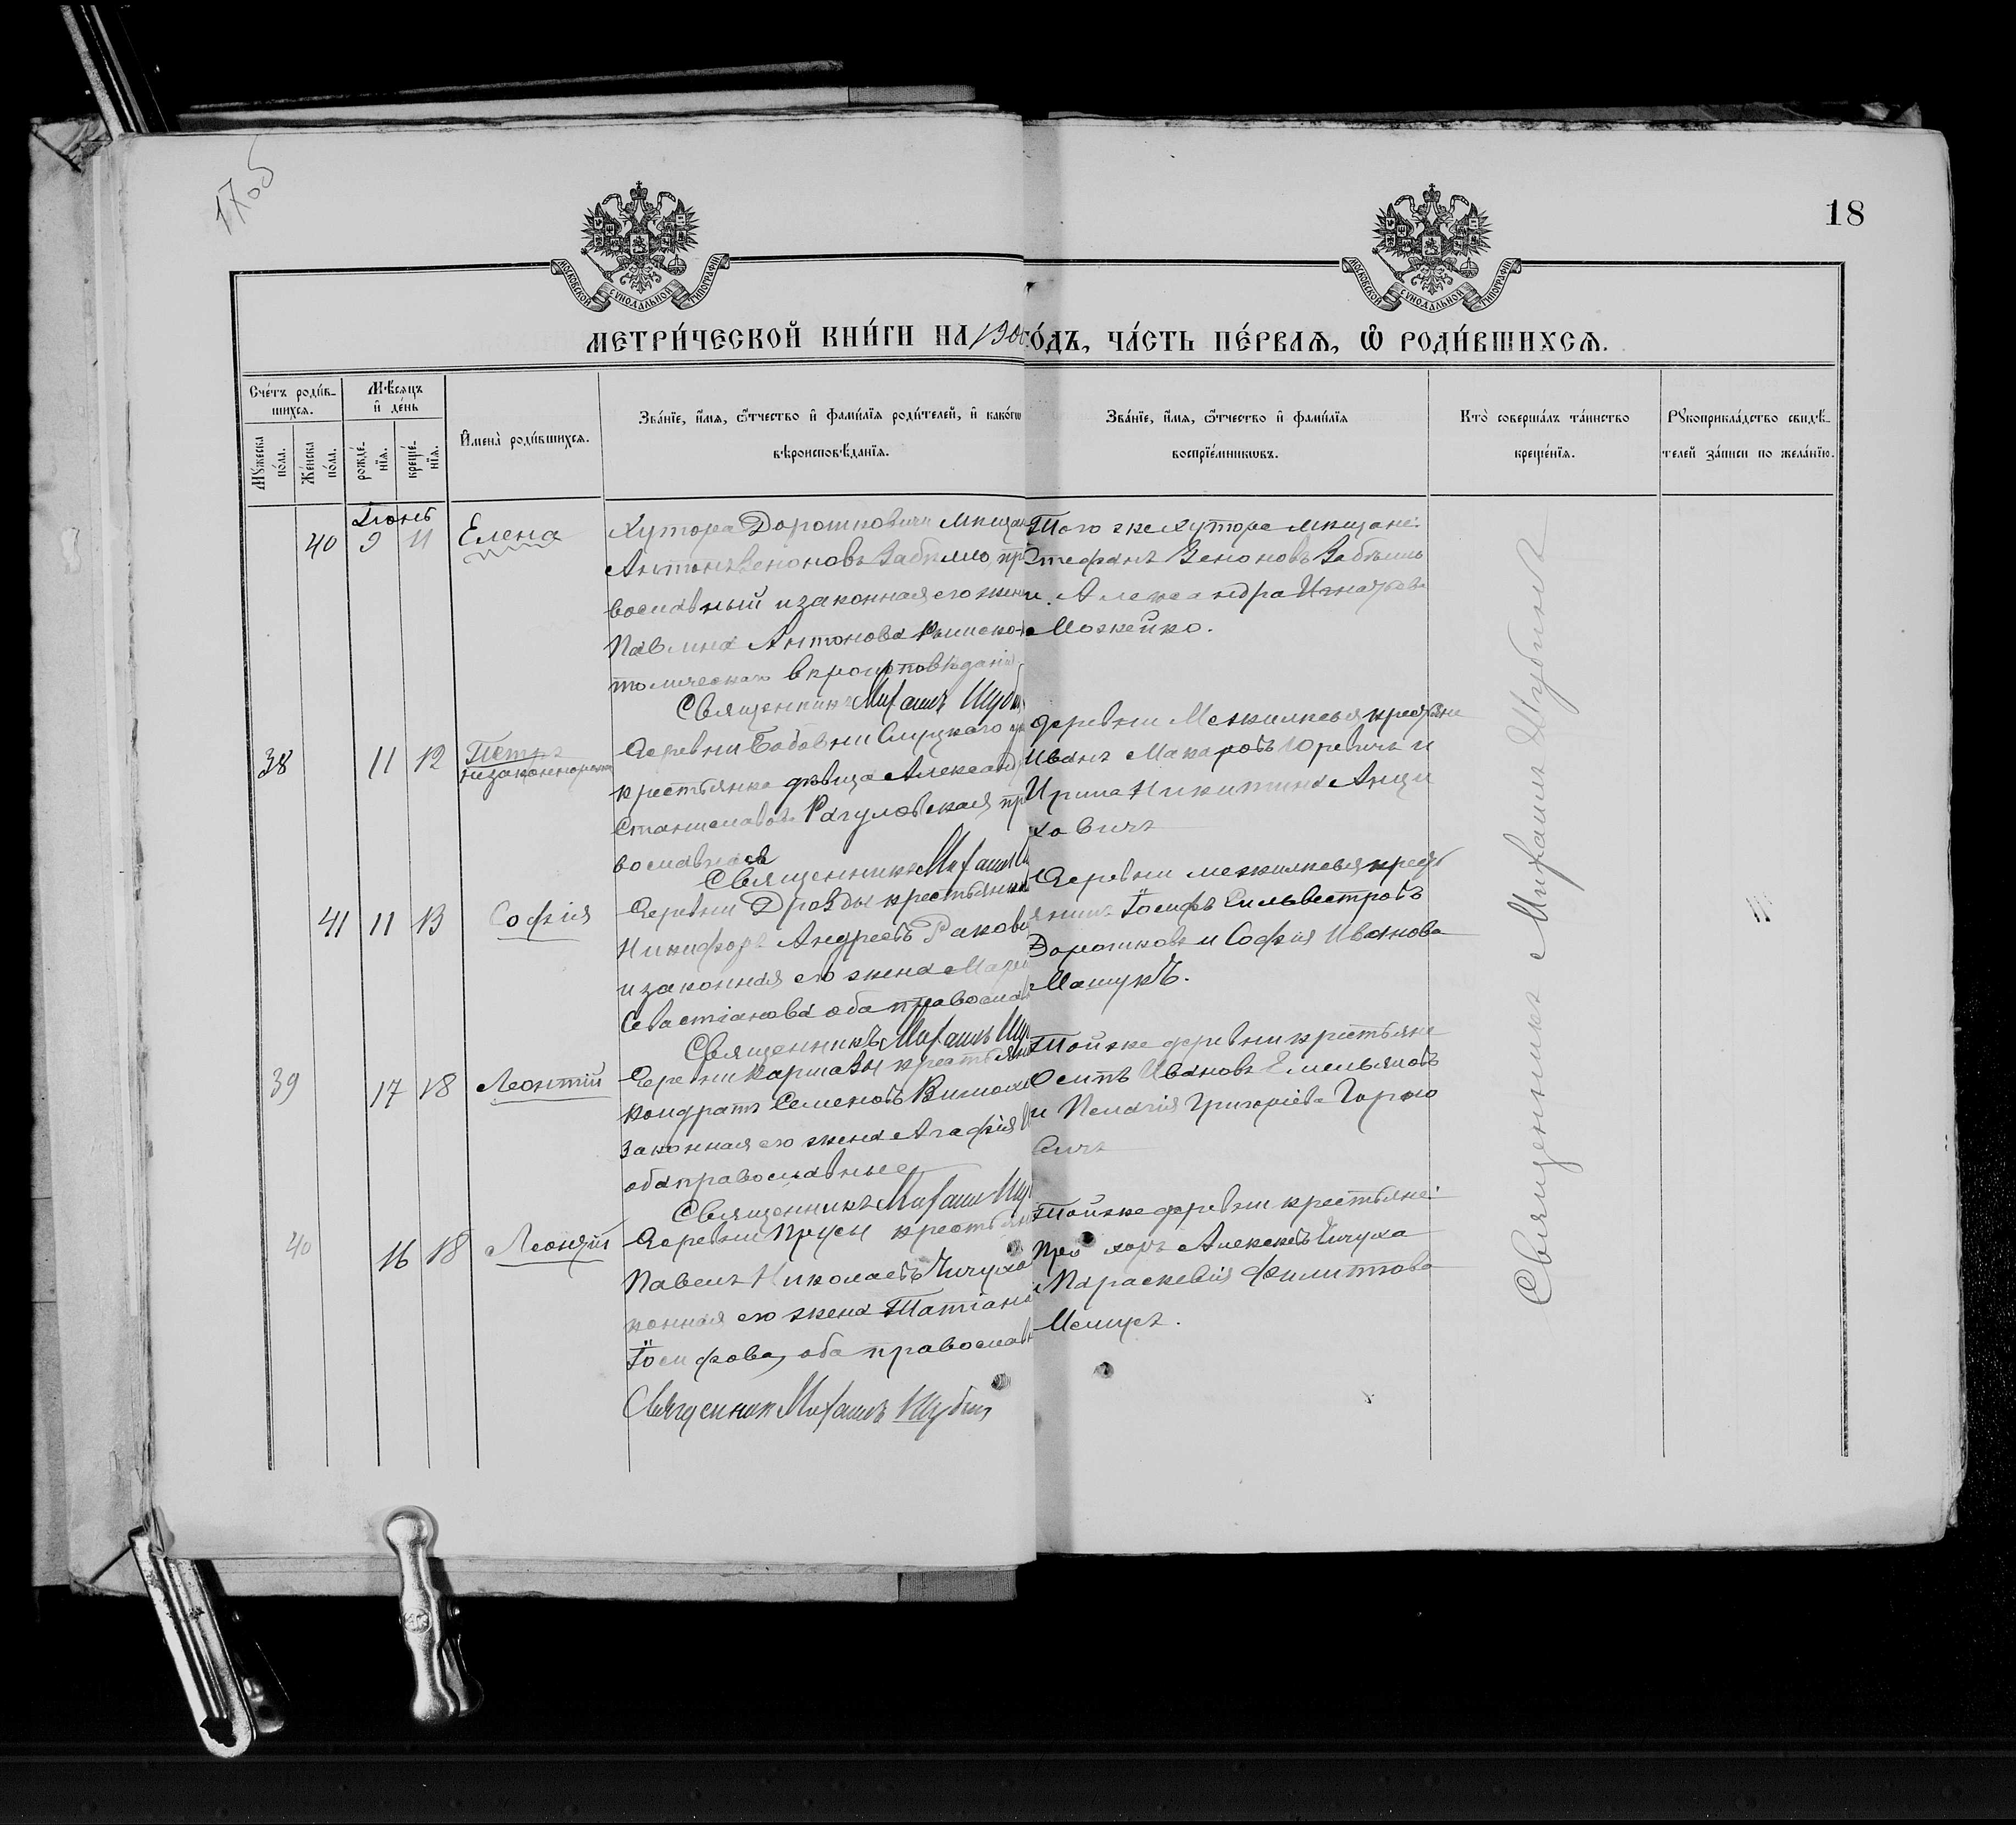 17об
18
МОСКОВСКОЙ СУНОДАЛЬНОЙ ТИПОГРАФІИ
МОСКОВСКОЙ СУНОДАЛЬНОЙ ТИПОГРАФІИ
МЕТРИ́ЧЕСКОЙ КНИ́ГИ НА 190 ГО́ДЪ, ЧА́СТЬ ПЕ́РВАѦ, Ѡ РОДИ́ВШИХСѦ.
Сче́тъ роди́в-
шихсѧ.
Мꙋжеска по́ла.
Же́нска по́ла.
Мѣсѧцъ и де́нь
рожде́-нїѧ.
креще́-нїѧ.
Имена̀ роди́вшихсѧ.
Зва́нїе, и́мѧ, ѻ́тчество и фами́лїѧ роди́телей, и како́гѡ
вѣроисповѣ́данїѧ.
Зва́нїе, и́мѧ, ѻ́тчество и фами́лїѧ
воспрїе́мникѡвъ.
Кто̀ соверша́лъ та́инство
креще́нїѧ.
Рꙋкоприкла́дство свидѣ́-
телей за́писи по жела́нїю.
Іюнь
40 9 11 Елена
Хутора Дорошковичи мещан
Антонъ Зеноновъ Забѣлло, пр
вославный и законная его жен
Павлина Антонова Римско-ка
толическаго вѣроисповѣданія.
Священникъ Михаилъ Шуб
Того же хутора мещане:
Стефанъ Зеноновъ Забѣлло
и Александра Игнатьева
Можейко.
38 11 12 Петръ
незаконнорожд
Деревни Бобовни Слуцкаго у
крестьянка дѣвица Александр
Станиславова Рагуловская пр
вославная
Священникъ Михаилъ
Деревни Межилѣсья крестьяне
Иванъ Макаровъ Юревичъ и
Ирина Никитина Анци
ховичъ
41 11 13 Софія
Деревни Дрозды крестьянин
Никифоръ Андреевъ Ракови
и законная его жена Мари
Севастіанова оба православ
Священникъ Михаилъ Шу
Деревни межилѣсья кресть
янинъ Іосифъ Сильвестровъ
Дорошковъ и Софія Иванова
Машукъ.
39 17 18 Леонтій
Деревни Каршавы крестьянин
Кондратъ Семеновъ
законная его жена Агафія
оба православные
Священникъ Михаилъ Шу
Той же деревни крестьяне
Осипъ Ивановъ Емельяновъ
и Пелагія Григоріева
40 16 18 Леонтій
Деревни Прусы крестьян
Павелъ Николаевъ Чичуха
конная его жена Татіана
Іосифова, оба православн
Священник Михаилъ Шубин
Той же деревни крестьяне:
Алексѣевъ Чичуха
и Параскевія Филиппова
Священникъ Михаилъ Шубинъ